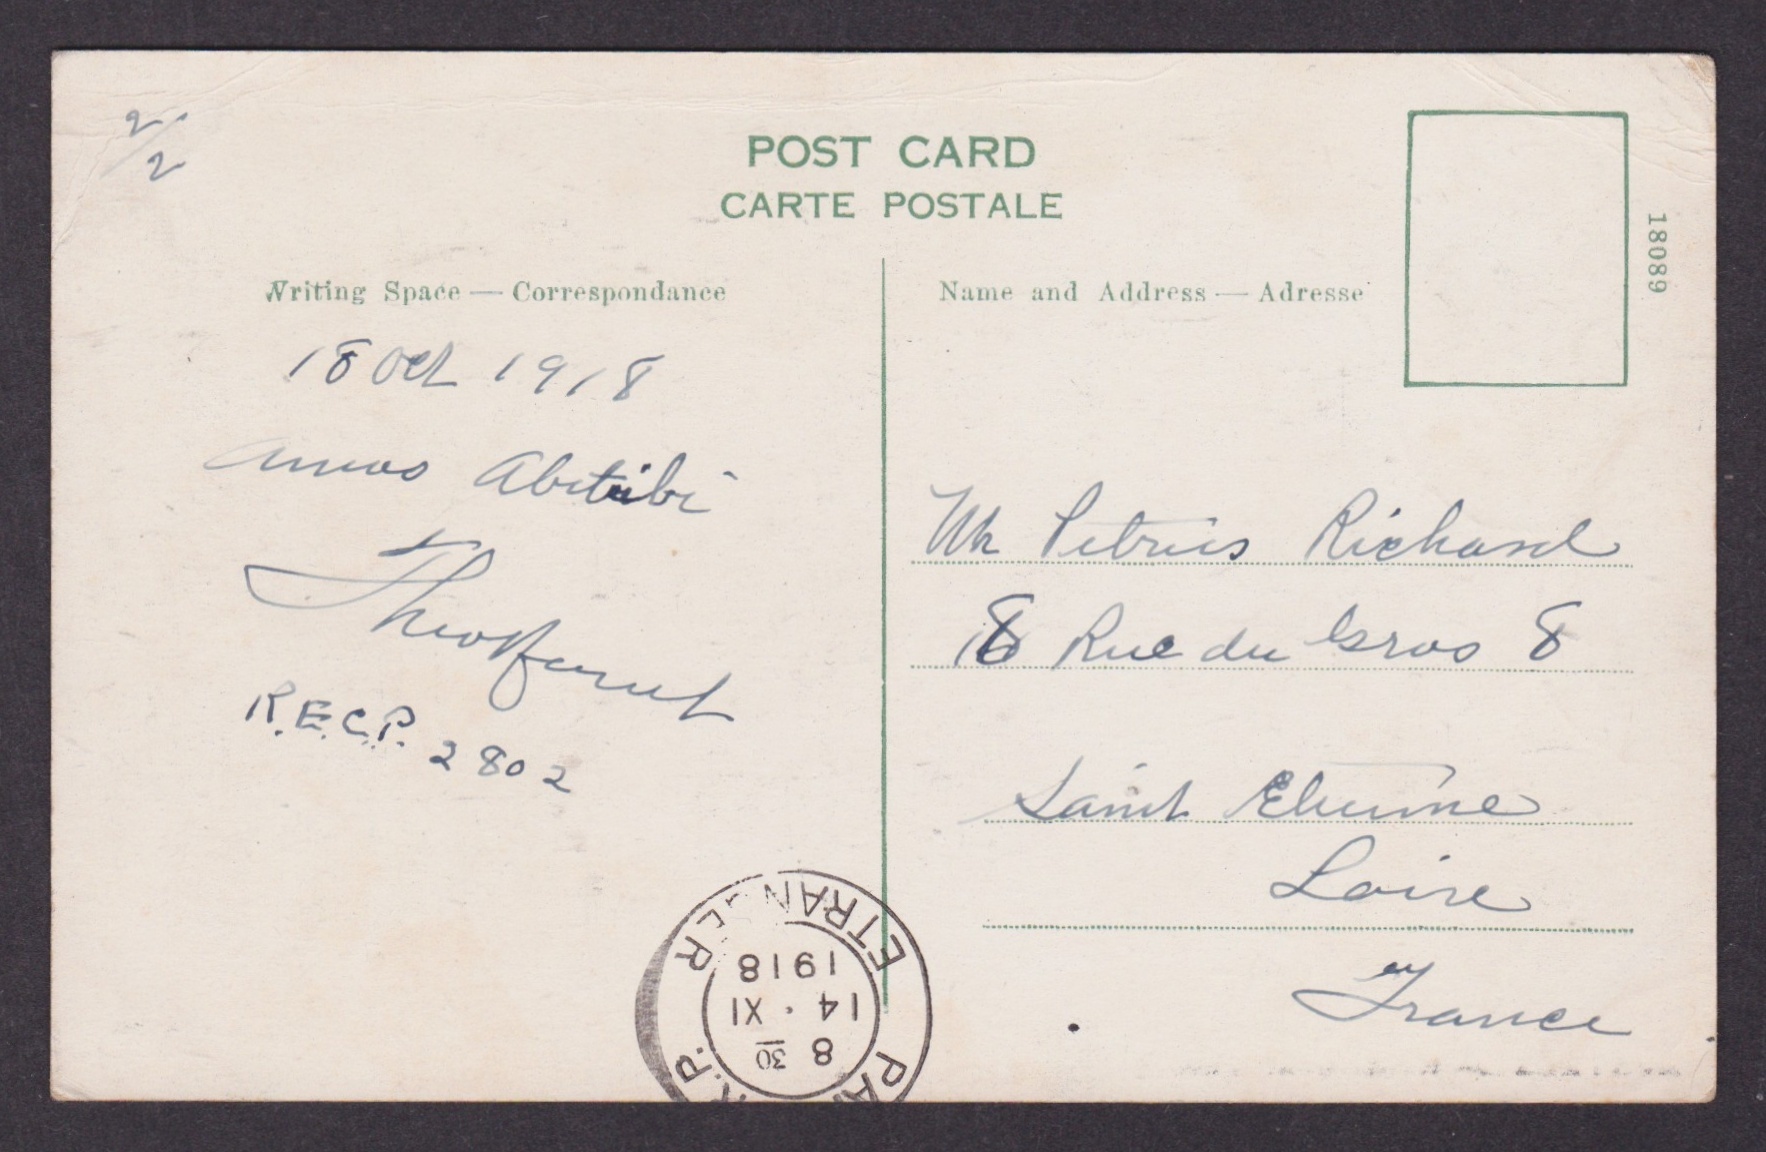 2/2
POST CARD
CARTE POSTALE
18089
Writing Space — Correspondance
Name and Address — Adresse
18 Oct 1918
Amos Abitibi
R.E.C.P. 2802
Mr Petrus Richard
8 Rue du Gros 8
Saint Etienne
Loire
France
ETRANGER
1918
14 · XI
8 30
R.P.